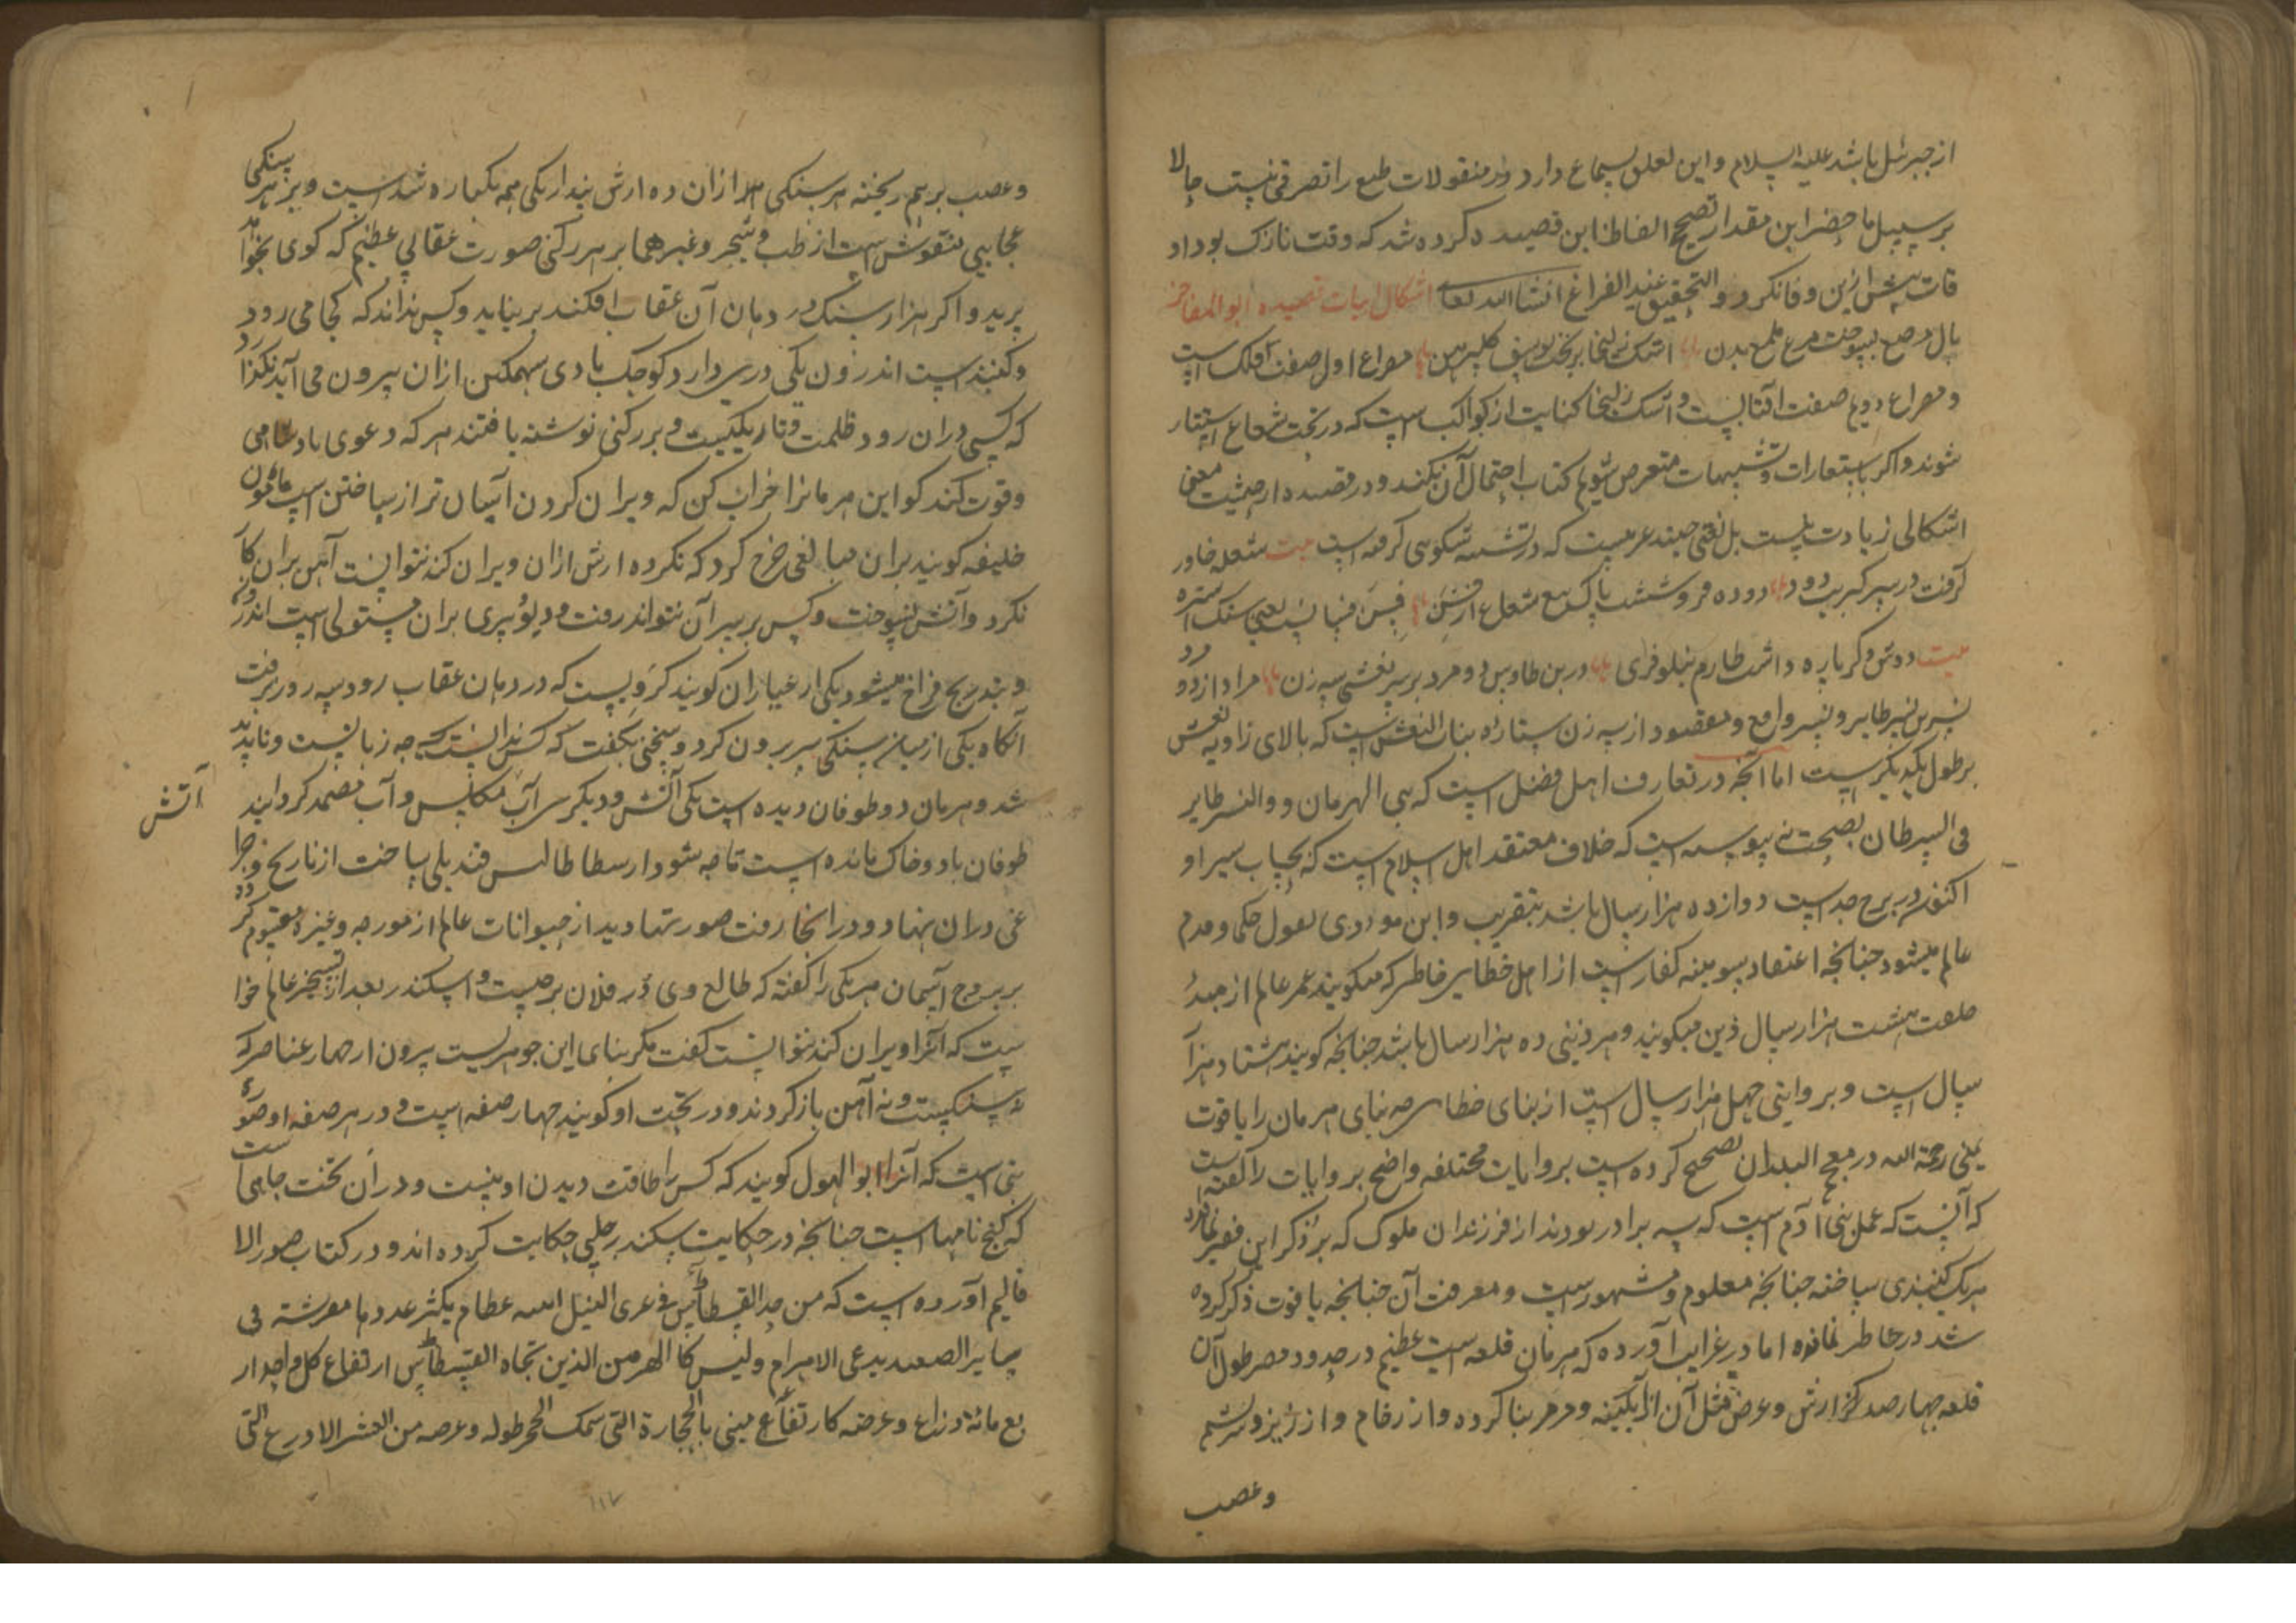 از جبرئیل باشد علیه السلام و این تعلق بسماع دارد و در منقولات طبع را تصرفی نیست حالا
بر سبیل ما حضر این مقدار تصحیح الفاظ این قصیده کرده شد که وقت نازک بود او
قات بیش ازین وفا نکرد و التحقیق عند الفراغ انشا الله تعالی اشکال ابیات قصیده ابو المفاخر
بال مرصع بسوخت مرغ ملمع بدن اشک زلیخا بریخت یوسف کل پیرهن مصراع اول صفت فلک است
و مصراع دویم صفت افتابست و اشک زلیخا کنایت از کواکب است که در تحت شعاع استتار
شوند و اکر باستعارات و تشبیهات متعرض شویم کتاب احتمال آن نکند و در قصیده از حیثیت معنی
اشکالی زیادت نیست بل لغتی چند عربیست که در تتمه شکوهی کرفته است بیت شعله خاور
کرفت در سر کبریت دود دوده فروشست پاک مع شعل از فسن فسن فسان یعنی سنک استره
بیت دوش دکرباره داشت طارم نیلوفری در بن طاوس دو مرد بر سر نعشی سه زن مراد از دو مرد
نسرین نسر طایر و نسر واقع و مقصود از سه زن ستاره بنات النعش است که بالای زاویه نعش
بر طول یکدیکرست اما آنچه در تعارف اهل فضل است که بنی الهرمان و النسر طایر
فی السرطان بصحت نه پیوسته است که خلاف معتقد اهل اسلام است که بحساب سیر او
اکنون در برج جدیست دوازده هزار سال باشد بتقریب و این مودی بقول حکما و قدم
عالم میشود چنانچه اعتقاد سومینه کفارست از اهل خطای فاطر که میکویند عمر عالم از مبدء
خلعت هشت هزار سال ذین میکویند و هر ذینی ده هزار سال باشد چنانچه کویند هشتاد هزار
سال است و بروایتی چهل هزار سال است از بنای خطا هر چه بنای هرمان را یاقوت
یمنی رحمة الله در معجم البلدان تصحیح کرده است بروایات مختلفه و اضح بروایات را کفته است
که آنست که عمل بنی آدم است که سه برادر بودند از فرزندان ملوک که بر ذکر این فقیر نماند
هر یک کنبذی ساخته چنانچه معلوم و مشهورست و معرفت آن چنانچه یاقوت ذکر کرده
شد در خاطر نمانده اما در غرایب آورده که هرمان قلعه ایست عظیم در حدود مصر طول آن
قلعه چهار صد کز ارش و عرض مثل آن از آبکینه و مرمر بنا کرده و از رخام و ارزیز و شم
و عصب
و عصب برهم ریخته هر سنکی هزار از ان ده ارش پندار یکی همه یکپاره شده است و بر هر سنکی
عجایبی منقوش است از طب و شجر و غیرهما بر هر رکنی صورت عقابی عظیم که کوی بخواهد
پرید و اکر هزار سنک در دهان آن عقاب افکند بر نیاید و کس نداند که کجا می رود
و کنبذیست اندرون یکی دری دارد کوچک بادی سهمکین ازان بیرون می آید نکذارد
که کسی دران رود ظلمت و تاریکیست و بر رکنی نوشته یافتند هر که دعوی پادشاهی
و قوت کند کو این هرمانرا خراب کن که ویران کردن آسان تر از ساختن است مامون
خلیفه کویند بران مبالغی خرج کرد که نکرده ارش ازان ویران کند نتوانست آهن بران کار
نکرد و آتش نسوخت و کس بر سر آن نتواند رفت و دیو و پری بران مستولی است اندرون
و بتدریج فراخ میشود یکی از عیاران کویند کرویست که در دهان عقاب رود سه روز برفت
آنکاه یکی از میان سنکی سر برون کرد و سخنی بکفت که کس ندانست که چه زبانست و ناپدید
شد و هرمان دو طوفان دیده است یکی آتش و دیکر سر آب مکلس و آب مصمد کردانید
آتش
طوفان باد و خاک مانده است تا چه شود ارسطاطالیس قندیلی ساخت از تاریخ و چرا
غی دران بنهاد و در آنجا رفت صورتها دید از حیوانات عالم از مورچه و غیره مقسوم کرده
بر بروج آسمان هر یکی را کفته که طالع وی در فلان برجست و اسکندر بعد از تسخیر عالم خوا
ست که آنرا ویران کند نتوانست کفت مکر بنای این جوهریست بیرون از چهار عناصر که
نه سنکیست و نه آهن باز کردند و در تحت او کویند چهار صفه است و در هر صفه او صورت
بتی است که آنرا ابو الهول کویند که کس را طاقت دیدن او نیست و دران تخت جایی است
که کنج نامهاست چنانچه در حکایت سکندر حلبی حکایت کرده اند و در کتاب صور الا
قالیم آورده است که من حد القسطاس فی عری النیل ابنیه عظام یکثر عددها مفرشة فی
سایر الصعید یدعی الاهرام و لیس کا الهرمین الذین تجاه القسطاس ارتفاع کل واحد ار
بع مائة ذراع و عرضه کارتفاعه مبنی بالحجارة التی سمک الحجر طوله و عرضه من العشر الاذرع التی
۱۱۷